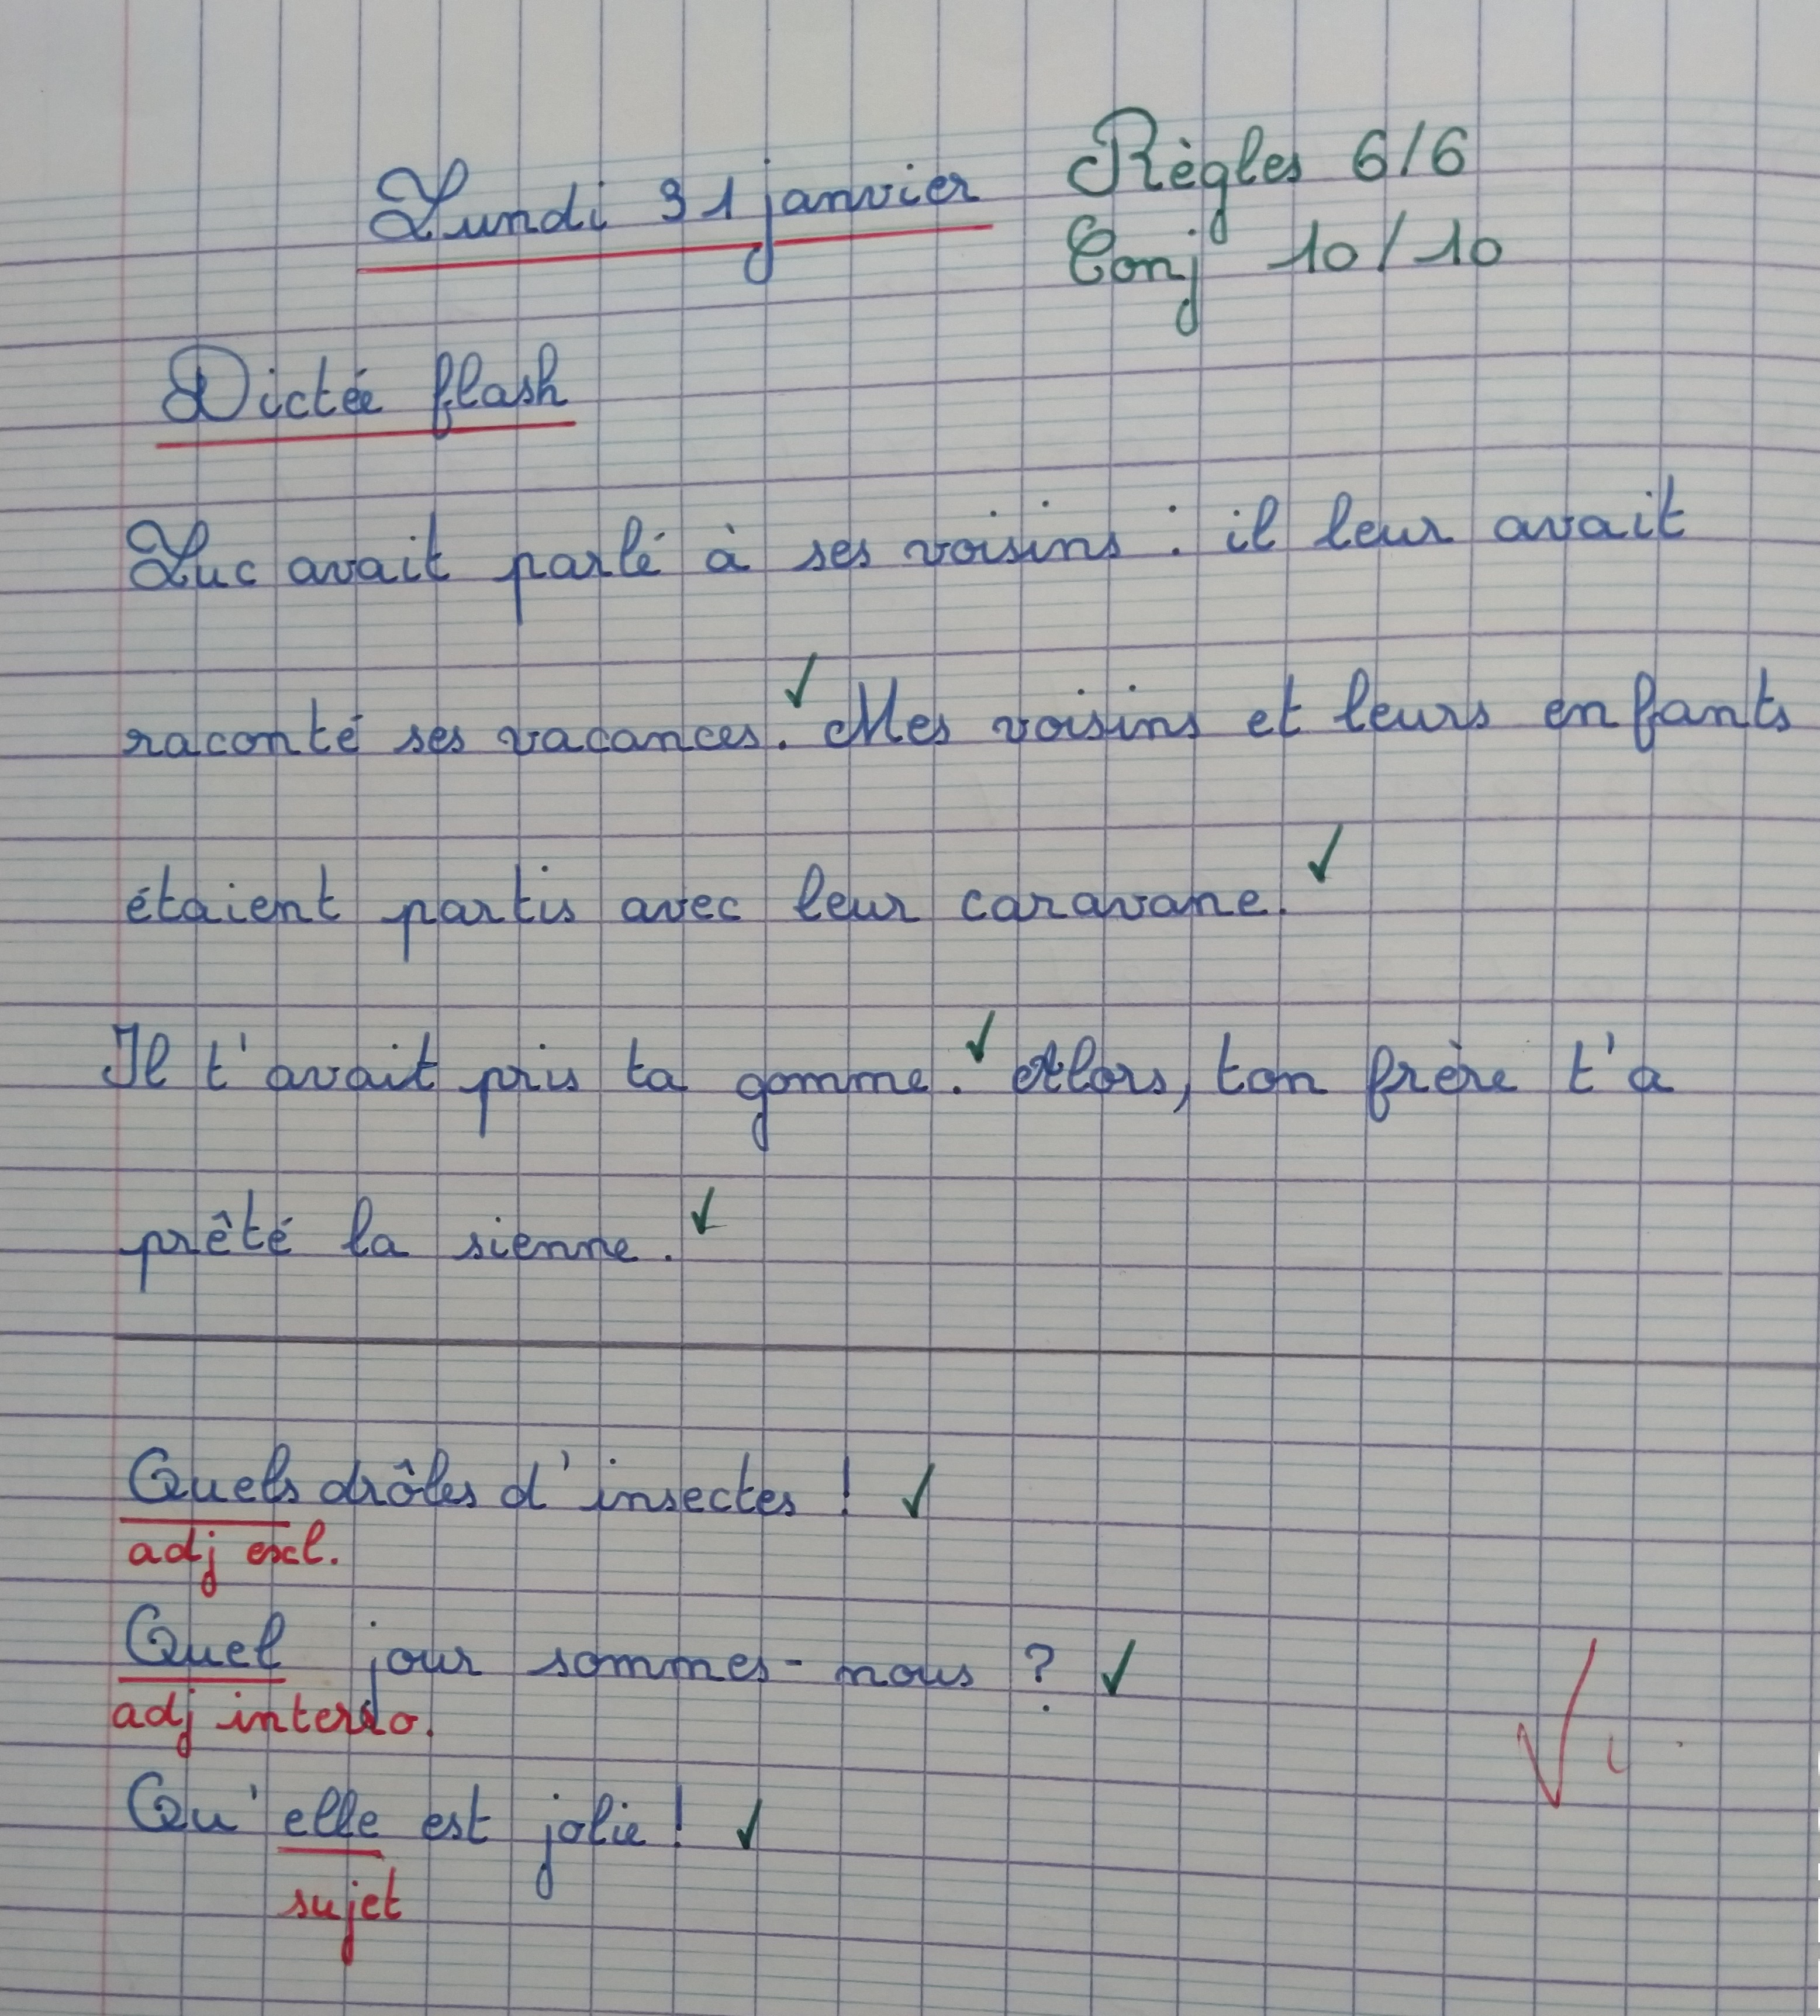 Lundi 31 janvier Règles 6/6
Conj 10/10
Dictée flash
Luc avait parlé à ses voisins : il leur avait
raconté ses vacances. Mes voisins et leurs enfants
étaient partis avec leur caravane.
Il t'avait pris ta gomme. Alors, ton frère t'a
prêté la sienne.
Quels drôles d'insectes !
adj excl.
Quel jour sommes-nous ?
adj interro.
Qu'elle est jolie !
sujet